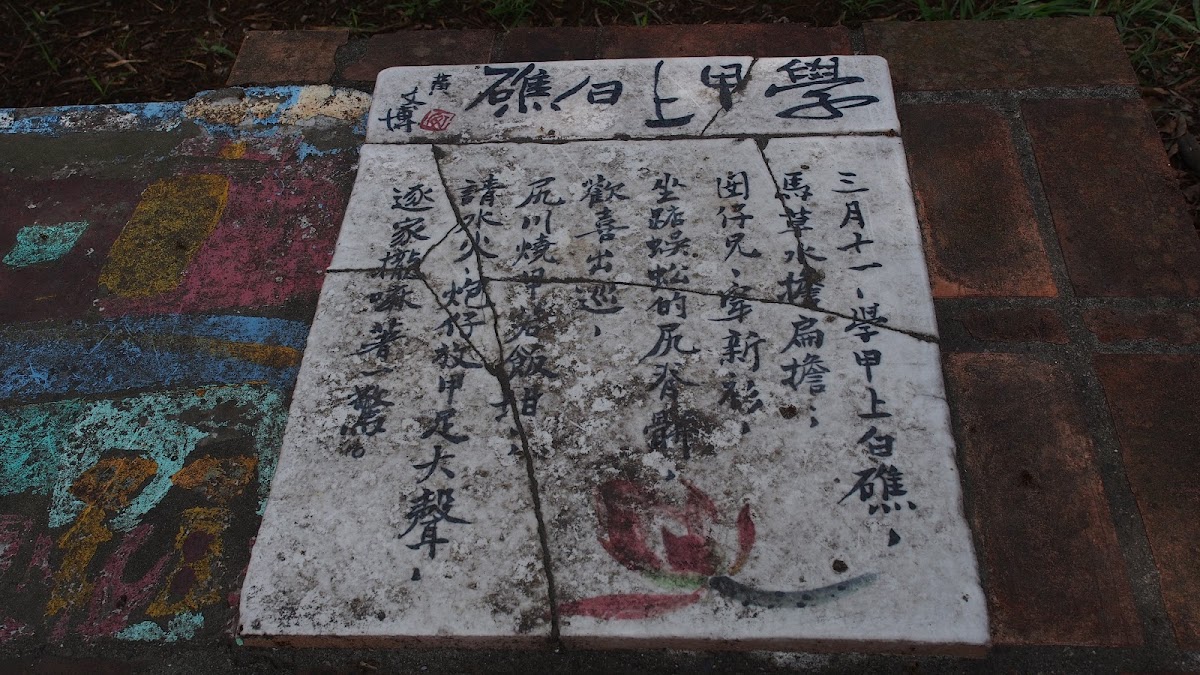 學甲上白礁
黃文博
三月十一、學甲上白礁，
馬草水擔扁擔；
囡仔兄，穿新衫，
坐踮蜈蚣的尻脊骿，
歡喜出巡，
尻川燒甲若飯坩，
請水火，炮仔放甲足大聲，
逐家攏著一驚。